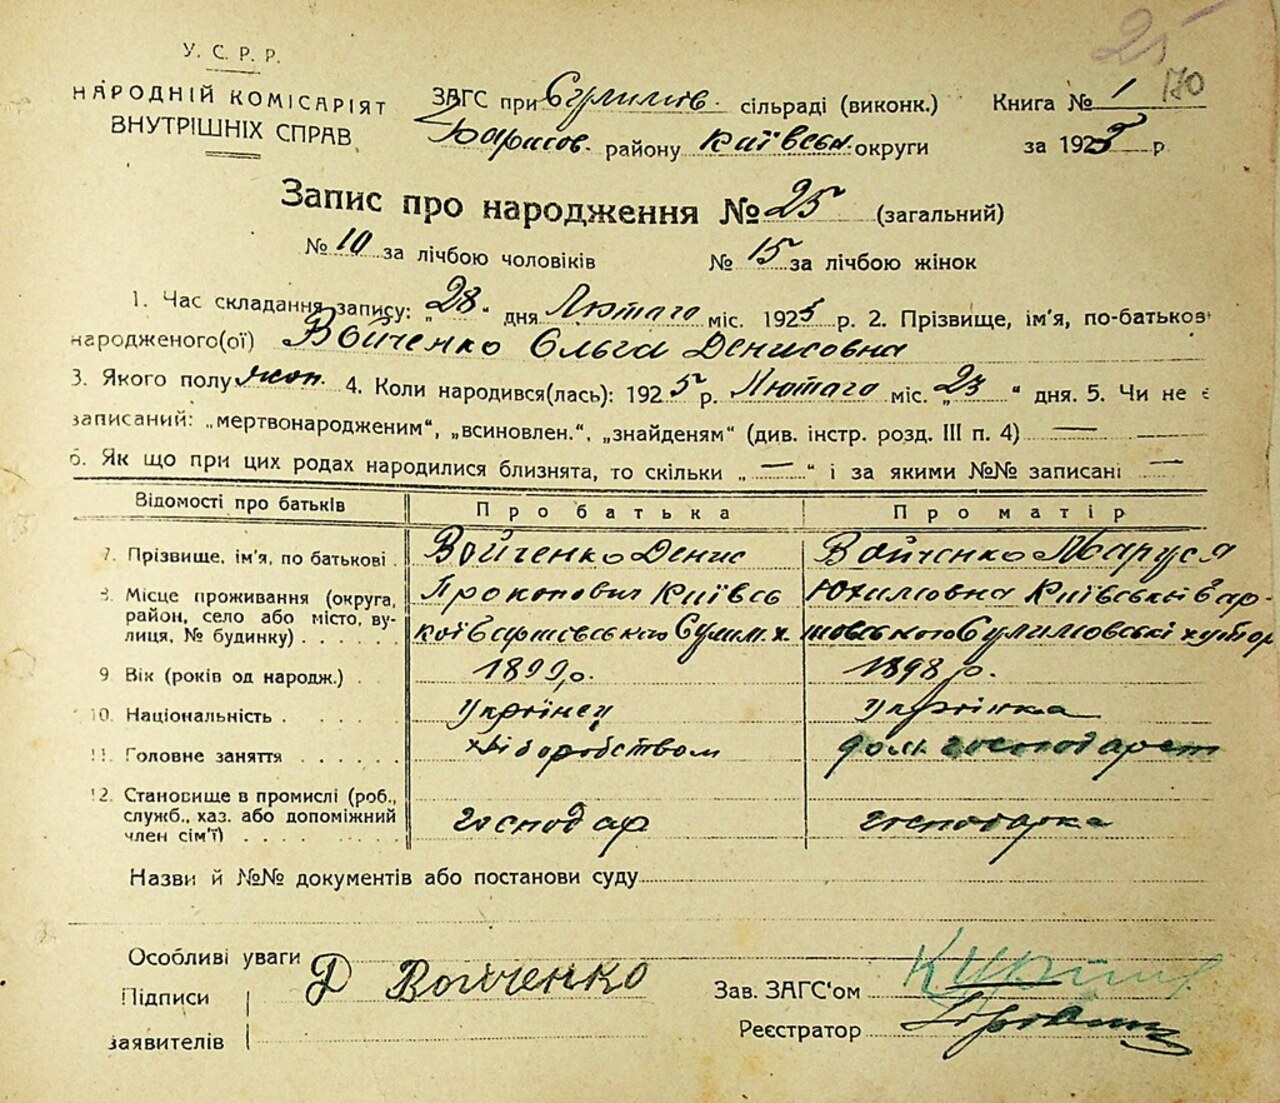 25
У. С. Р. Р.
НАРОДНІЙ КОМІСАРІЯТ
ВНУТРІШНІХ СПРАВ
ЗАГС при Сулимів. сільраді (виконк.) Книга № 1 170
району Київськ. округи за 1925 р
Запис про народження № 25 (загальний)
№ 10 за лічбою чоловіків № 15 за лічбою жінок
1. Час складання запису: „28" дня Лютаго міс. 1925 р. 2. Прізвище, ім'я, по-батькові
народженого(ої) Войченко Ольга Денисовна
3. Якого полу жон. 4. Коли народився(лась): 1925 р. Лютаго міс. „23" дня. 5. Чи не є
записаний: „мертвонародженим", „всиновлен.", „знайденям" (див. інстр. розд. III п. 4) —
6. Як що при цих родах народилися близнята, то скільки „—" і за якими №№ записані —
Відомості про батьків Про батька Про матір
7. Прізвище, ім'я, по батькові . Войченко Денис Войченко Маруся
8. Місце проживання (округа, Прокопович Київсь Юхимовна Київської Бар-
район, село або місто, ву- кої Сулим. х. Сулимовські хутор
лиця, № будинку) . . . . .
9. Вік (років од народж.) . 1899 р. 1898 р.
10. Національність . . . . . Українец Українка
11. Головне заняття . . . . . . хліборобством дом. господарст
12. Становище в промислі (роб.,
служб., хаз. або допоміжний господар господарка
член сім'ї) . . . . . . .
Назви й №№ документів або постанови суду
Особливі уваги
Підписи Д Войченко Зав. ЗАГС'ом
заявителів Реєстратор